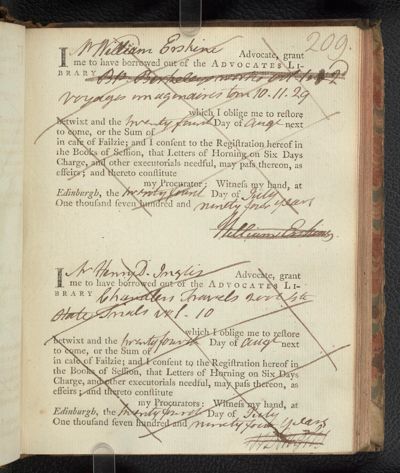 209.
I Mr William Erskine Advocate, grant
me to have borrowed out of the ADVOCATES LI-
BRARY
Voyages imaginaires 10. 11. 29
which I oblige me to restore
betwixt and the twenty fourth Day of Augt next
to come, or the Sum of
in case of Failzie; and I consent to the Registration hereof in
the Books of Session, that Letters of Horning on Six Days
Charge, and other executorials needful, may pass thereon, as
effeirs; and thereto constitute
my Procurator: Witness my hand, at
Edinburgh, the twenty fourth Day of July
One thousand seven hundred and ninety four years
William Erskine
I Mr Henry D. Inglis Advocate, grant
me to have borrowed out of the ADVOCATES LI-
BRARY Chandlers Travels
State Trials vol. 10
which I oblige me to restore
betwixt and the twenty fourth Day of Augt next
to come, or the Sum of
in case of Failzie; and I consent to the Registration hereof in
the Books of Session, that Letters of Horning on Six Days
Charge, and other executorials needful, may pass thereon, as
effeirs; and thereto constitute
my Procurators: Witness my hand, at
Edinburgh, the twenty fourth Day of July
One thousand seven hundred and ninety four years